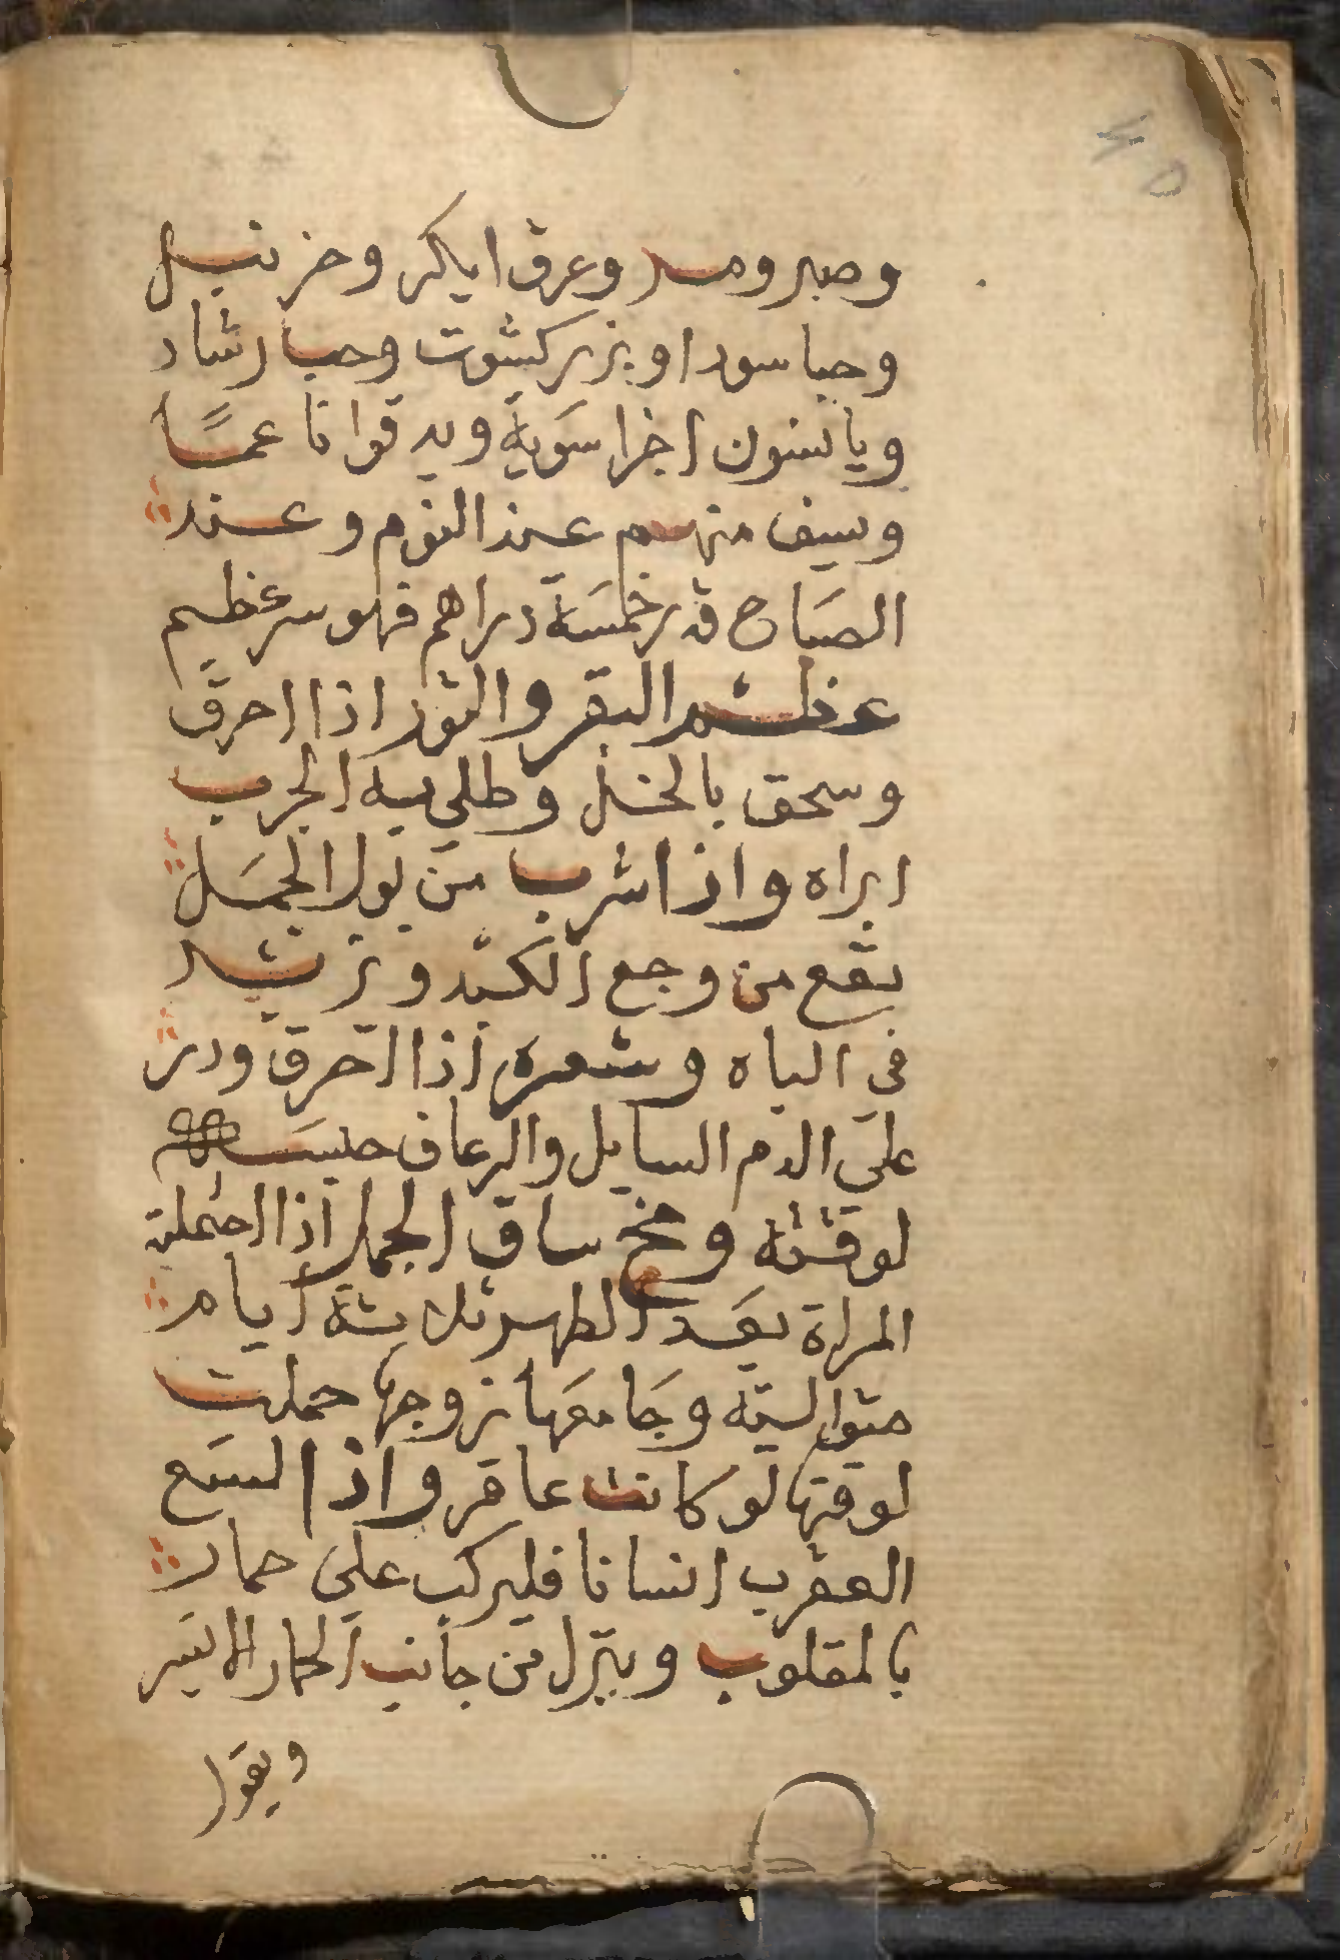 وصبر ومر وعرق ايكر وحزنبل
وحبا سودا وبزر كشوت وحب ارشاد
ويانسون اجزا سوية ويدقوا ناعمًا
وسيف منهم عند النوم وعند
الصباح قدر خمسة دراهم فهو سر عظيم
عظم البقر والثور اذا احرق
وسحق بالخل وطلي به الجرب
ابراه واذا شرب من بول الجمل
نفع من وجع الكبد وتزيد
في الباه وشعره اذا احرق ودر
على الدم السايل والرعاف حبسه
لوقته ومخ ساق الجمل اذا احتملته
المراة بعد الطهر ثلاثة ايام
متوالية وجامعها زوجها حملت
لوقتها لو كانت عاقر واذا لسع
العقرب انسانا فليركب على حمار
بالمقلوب وينزل من جانب الحمار الايسر
ويقول